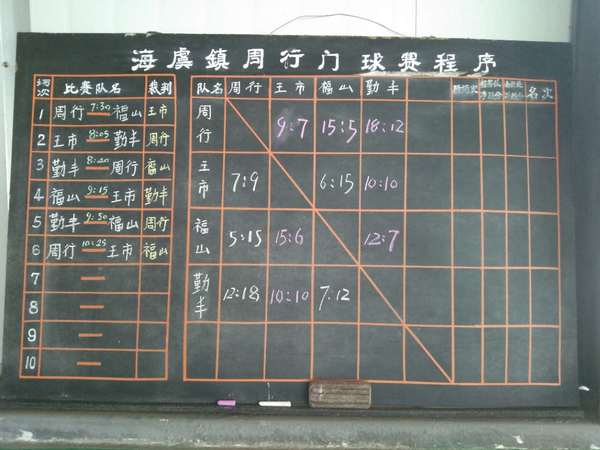 海虞鎮周行门球赛程序
场次 比赛队名 裁判
1 周行 7:30 福山 王市
2 王市 8:05 勤丰 周行
3 勤丰 8:40 周行 福山
4 福山 9:15 王市 勤丰
5 勤丰 9:50 福山 周行
6 周行 10:25 王市 福山
7 —
8 —
9 —
10 —
队名 周行 王市 福山 勤丰 名次
周行 9:7 15:5 18:12
王市 7:9 6:15 10:10
福山 5:15 15:6 12:7
勤丰 12:18 10:10 7:12